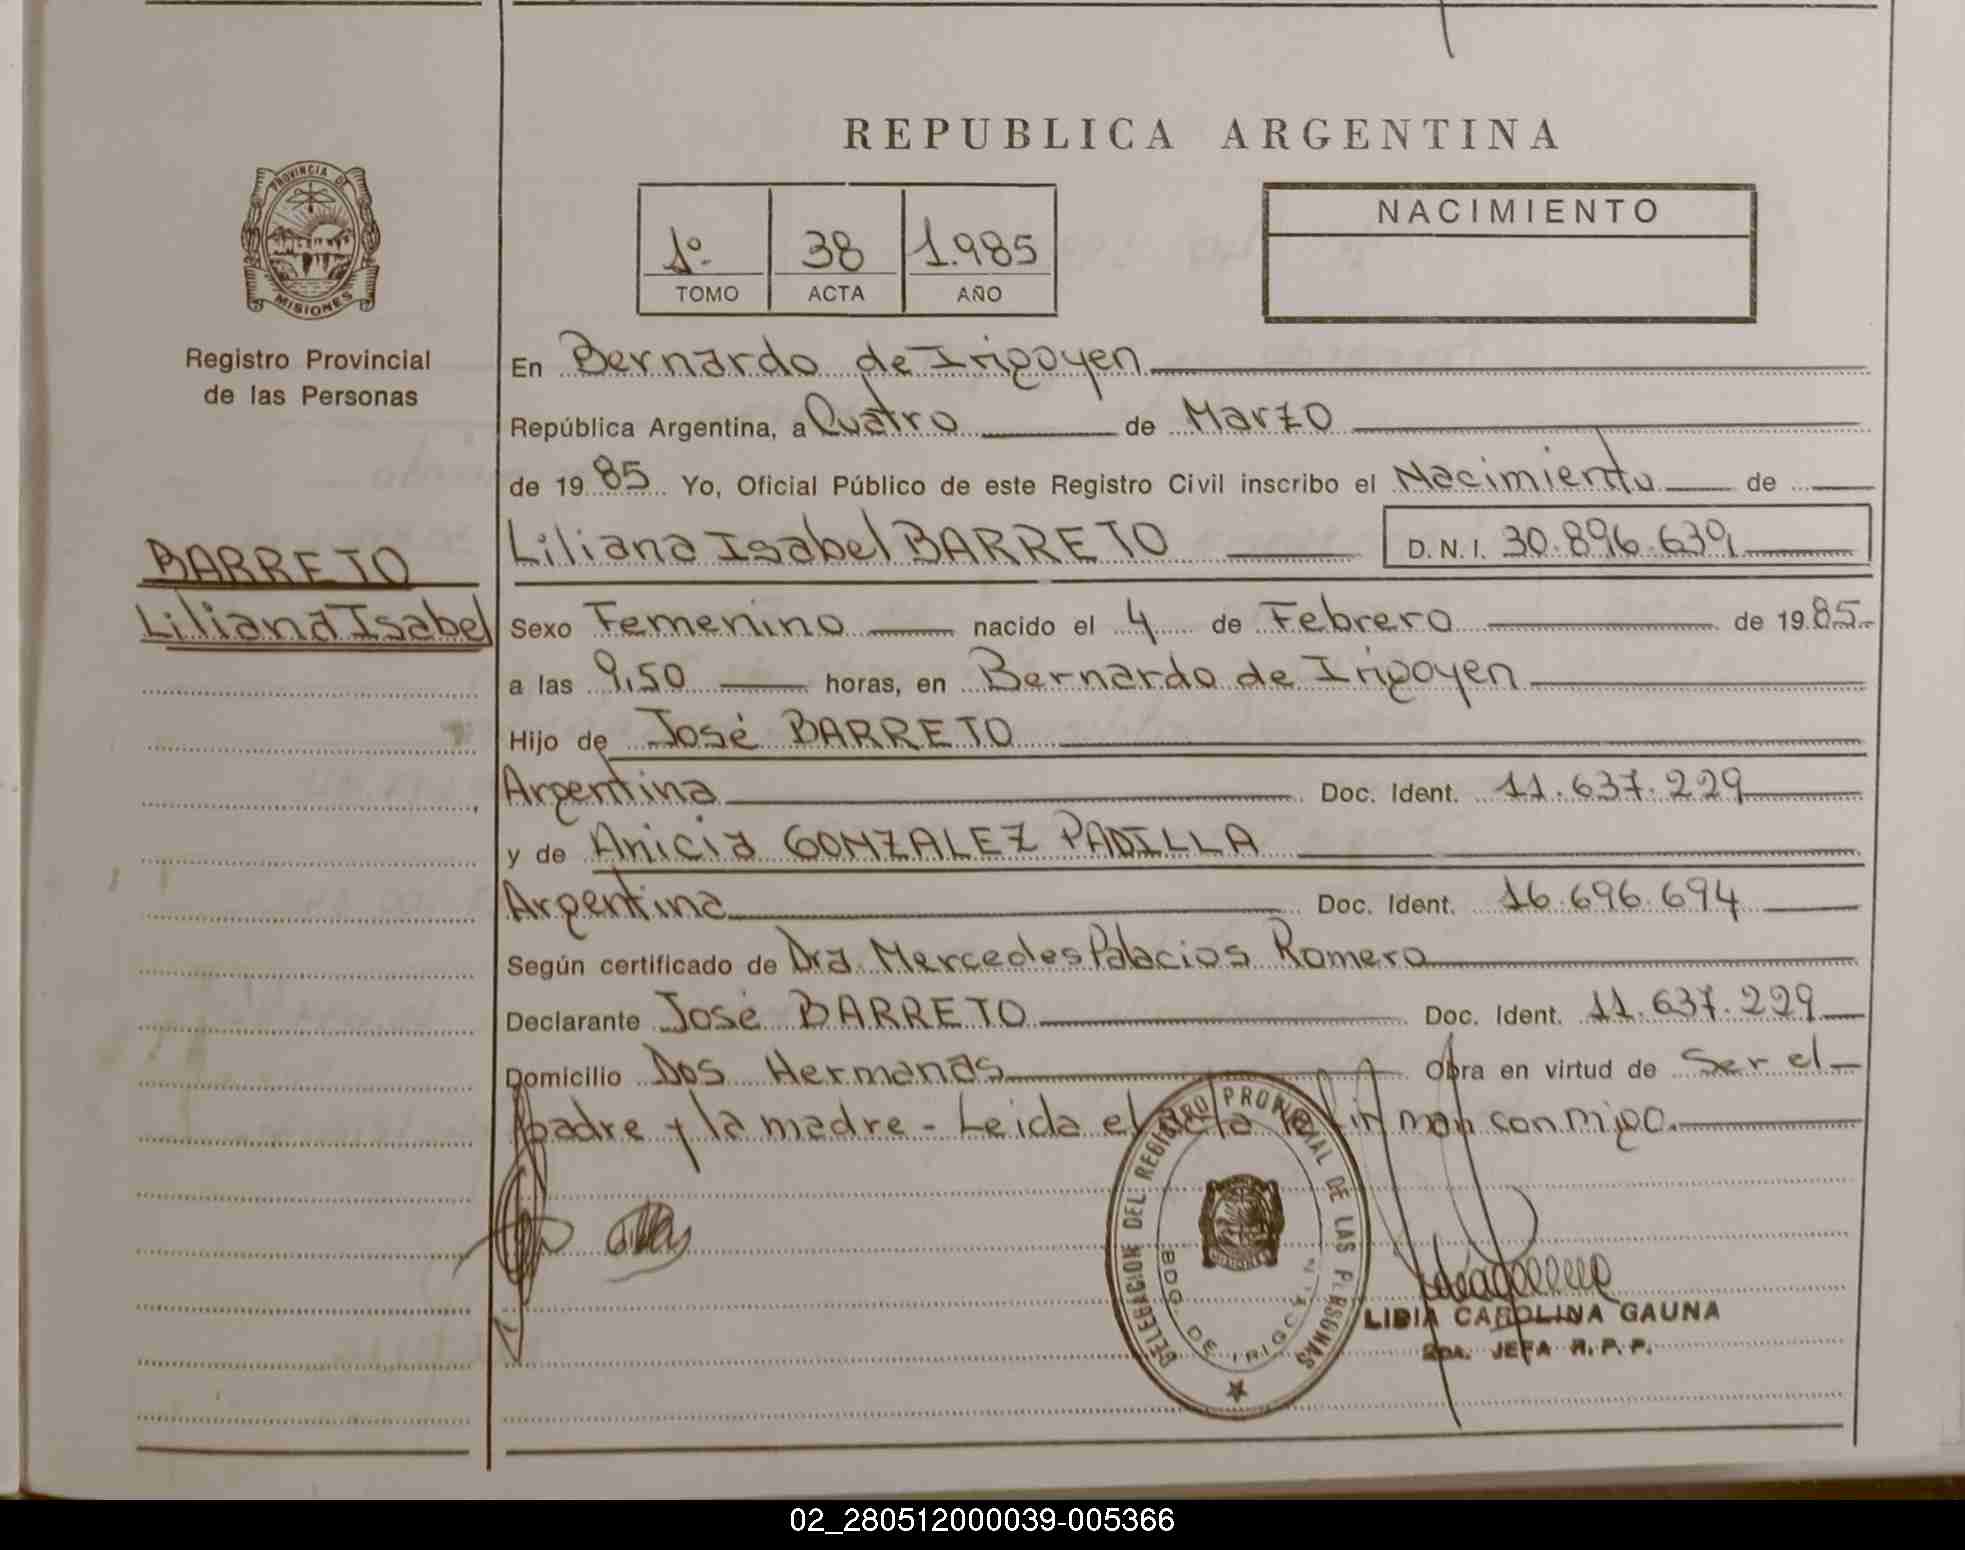 REPUBLICA ARGENTINA
PROVINCIA DE
MISIONES
Registro Provincial
de las Personas
1º 38 1.985
TOMO ACTA AÑO
NACIMIENTO
En Bernardo de Irigoyen
República Argentina, a Cuatro de Marzo
de 1985 Yo, Oficial Público de este Registro Civil inscribo el Nacimiento de
BARRETO
Liliana Isabel
Liliana Isabel BARRETO D.N.I. 30.896.639
Sexo Femenino nacido el 4 de Febrero de 1985
a las 9,50 horas, en Bernardo de Irigoyen
Hijo de José BARRETO
Argentina Doc. Ident. 11.637.229
y de Anicia GONZALEZ PADILLA
Argentina Doc. Ident. 16.696.694
Según certificado de Dra. Mercedes Palacios Romero
Declarante José BARRETO Doc. Ident. 11.637.229
Domicilio Dos Hermanas Obra en virtud de Ser el
padre y la madre - Leida el acta la firman conmigo.
DELEGACION DEL REGISTRO PROVINCIAL DE LAS PERSONAS
BDO. DE IRIGOYEN
LIDIA CAROLINA GAUNA
2DA. JEFA R. P. P.
02_280512000039-005366